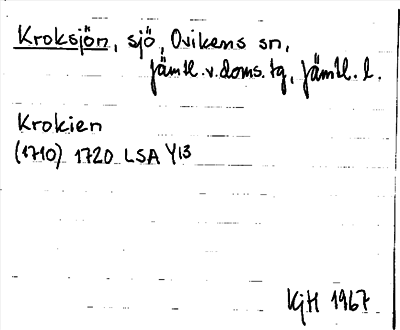 Kroksjön, sjö, Ovikens sn,
Jämtl. v. doms. tg, Jämtl. l.
Krokien
(1710) 1720 LSA Y13
KjH 1967